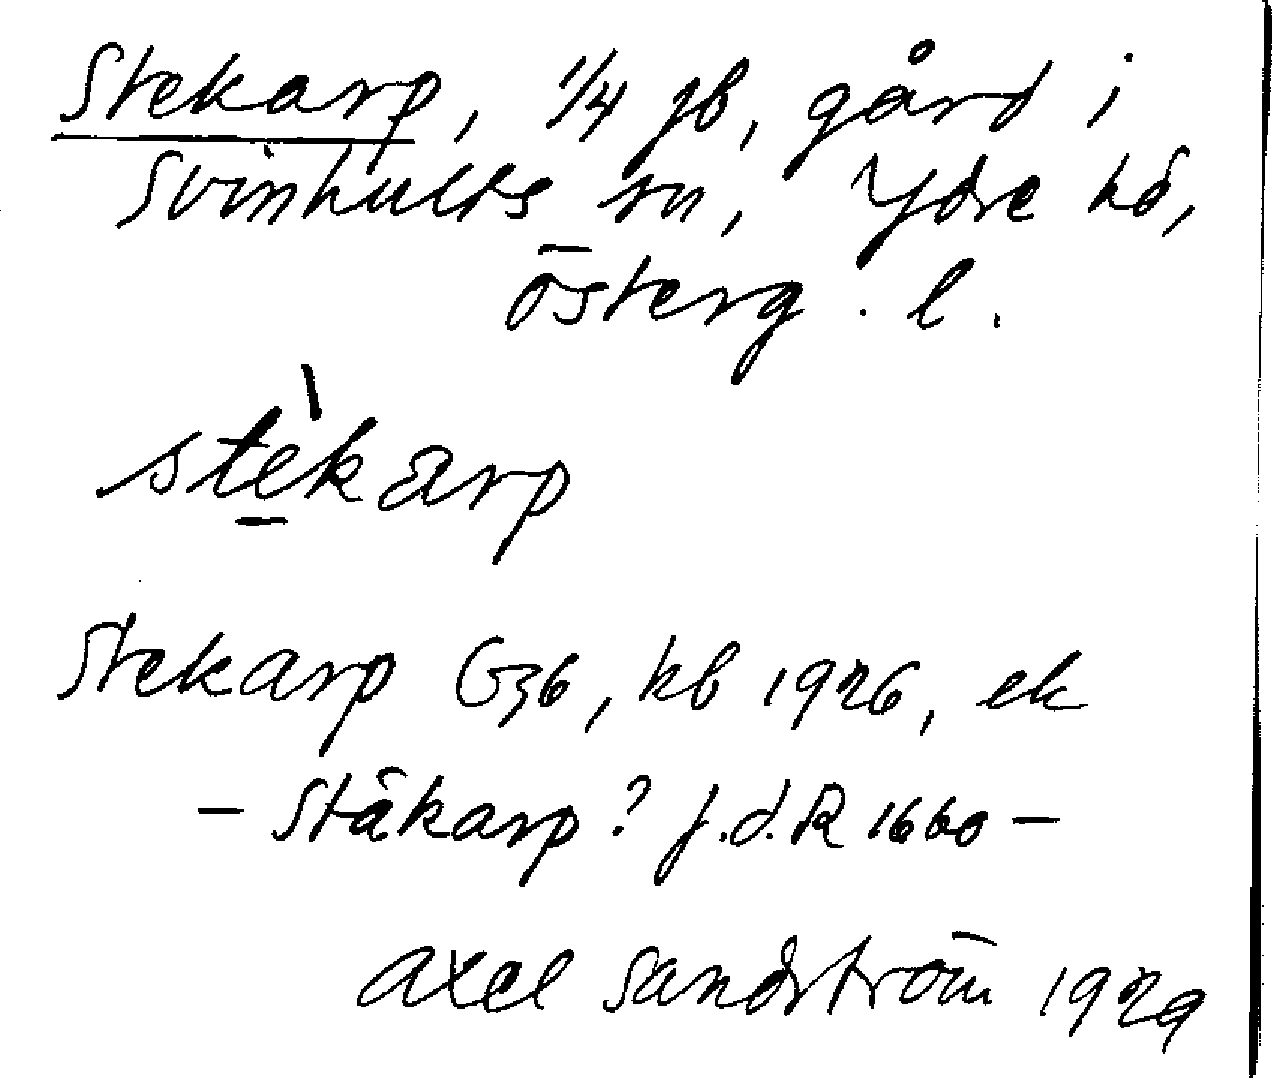 Stekarp, 1/4 jb, gård i
Svinhults sn, Ydre hd,
Österg. l.
stèkarp
Stekarp G36, kb 1926, ek
– Stäkarp? j.d.R 1660 –
Axel Sandström 1929